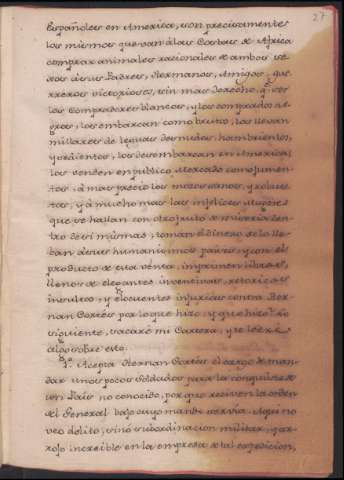 27
Españoles en America, son precisamente
los mismos que van álas Costas de Africa
comprar animales racionales de ambos se-
xos de sus Padres, Hermanos, Amigos, gue-
rreros victoriosos, sin mas derecho, q.e ser
los Compradores blancos, y los comprados ne-
gros, los embarcan como brutos, los llevan
millares de leguas desnudos, hambrientos,
y sedientos, los desembarcan en America,
los venden en publico Mercado como jumen-
tos, á mas precio los mozos sanos, y robus-
tos, y á mucho mas las infelices Mugeres
que se hallan con otro fruto de miseria den-
tro de sí mismas, toman el dinero, se lo lle-
ban á sus humanisimos países, y con el
producto de esta venta, imprimen libros
llenos de elegantes invectivas, retoricos
insultos, y eloquentes injurias contra Her-
nan Cortés por lo que hizo, y que hizo?
siguiente, sacaré mi Cartera, y te leeré
algo sobre esto.
1.o Acepta Hernan Cortés el cargo de man-
dar unos pocos Soldados para la conquista de
un País no conocido, por que reciven la orden
del General bajo cuyo mando servia. Aqui no
veo delito, sinó subordinacion militar, y ar-
rojo increible en la empresa de tal expedicion,